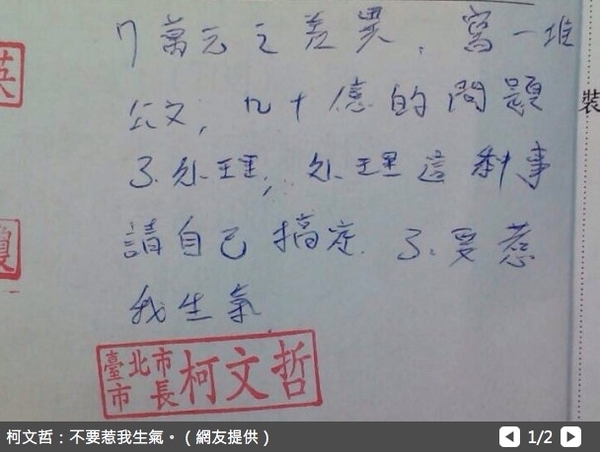 7萬元之差異，寫一堆
公文，九十億的問題
不处理，处理這剩事
請自己搞定．不要惹
我生氣．
裝
英
瓊
臺北市市長柯文哲
柯文哲：不要惹我生氣。（網友提供）
1/2